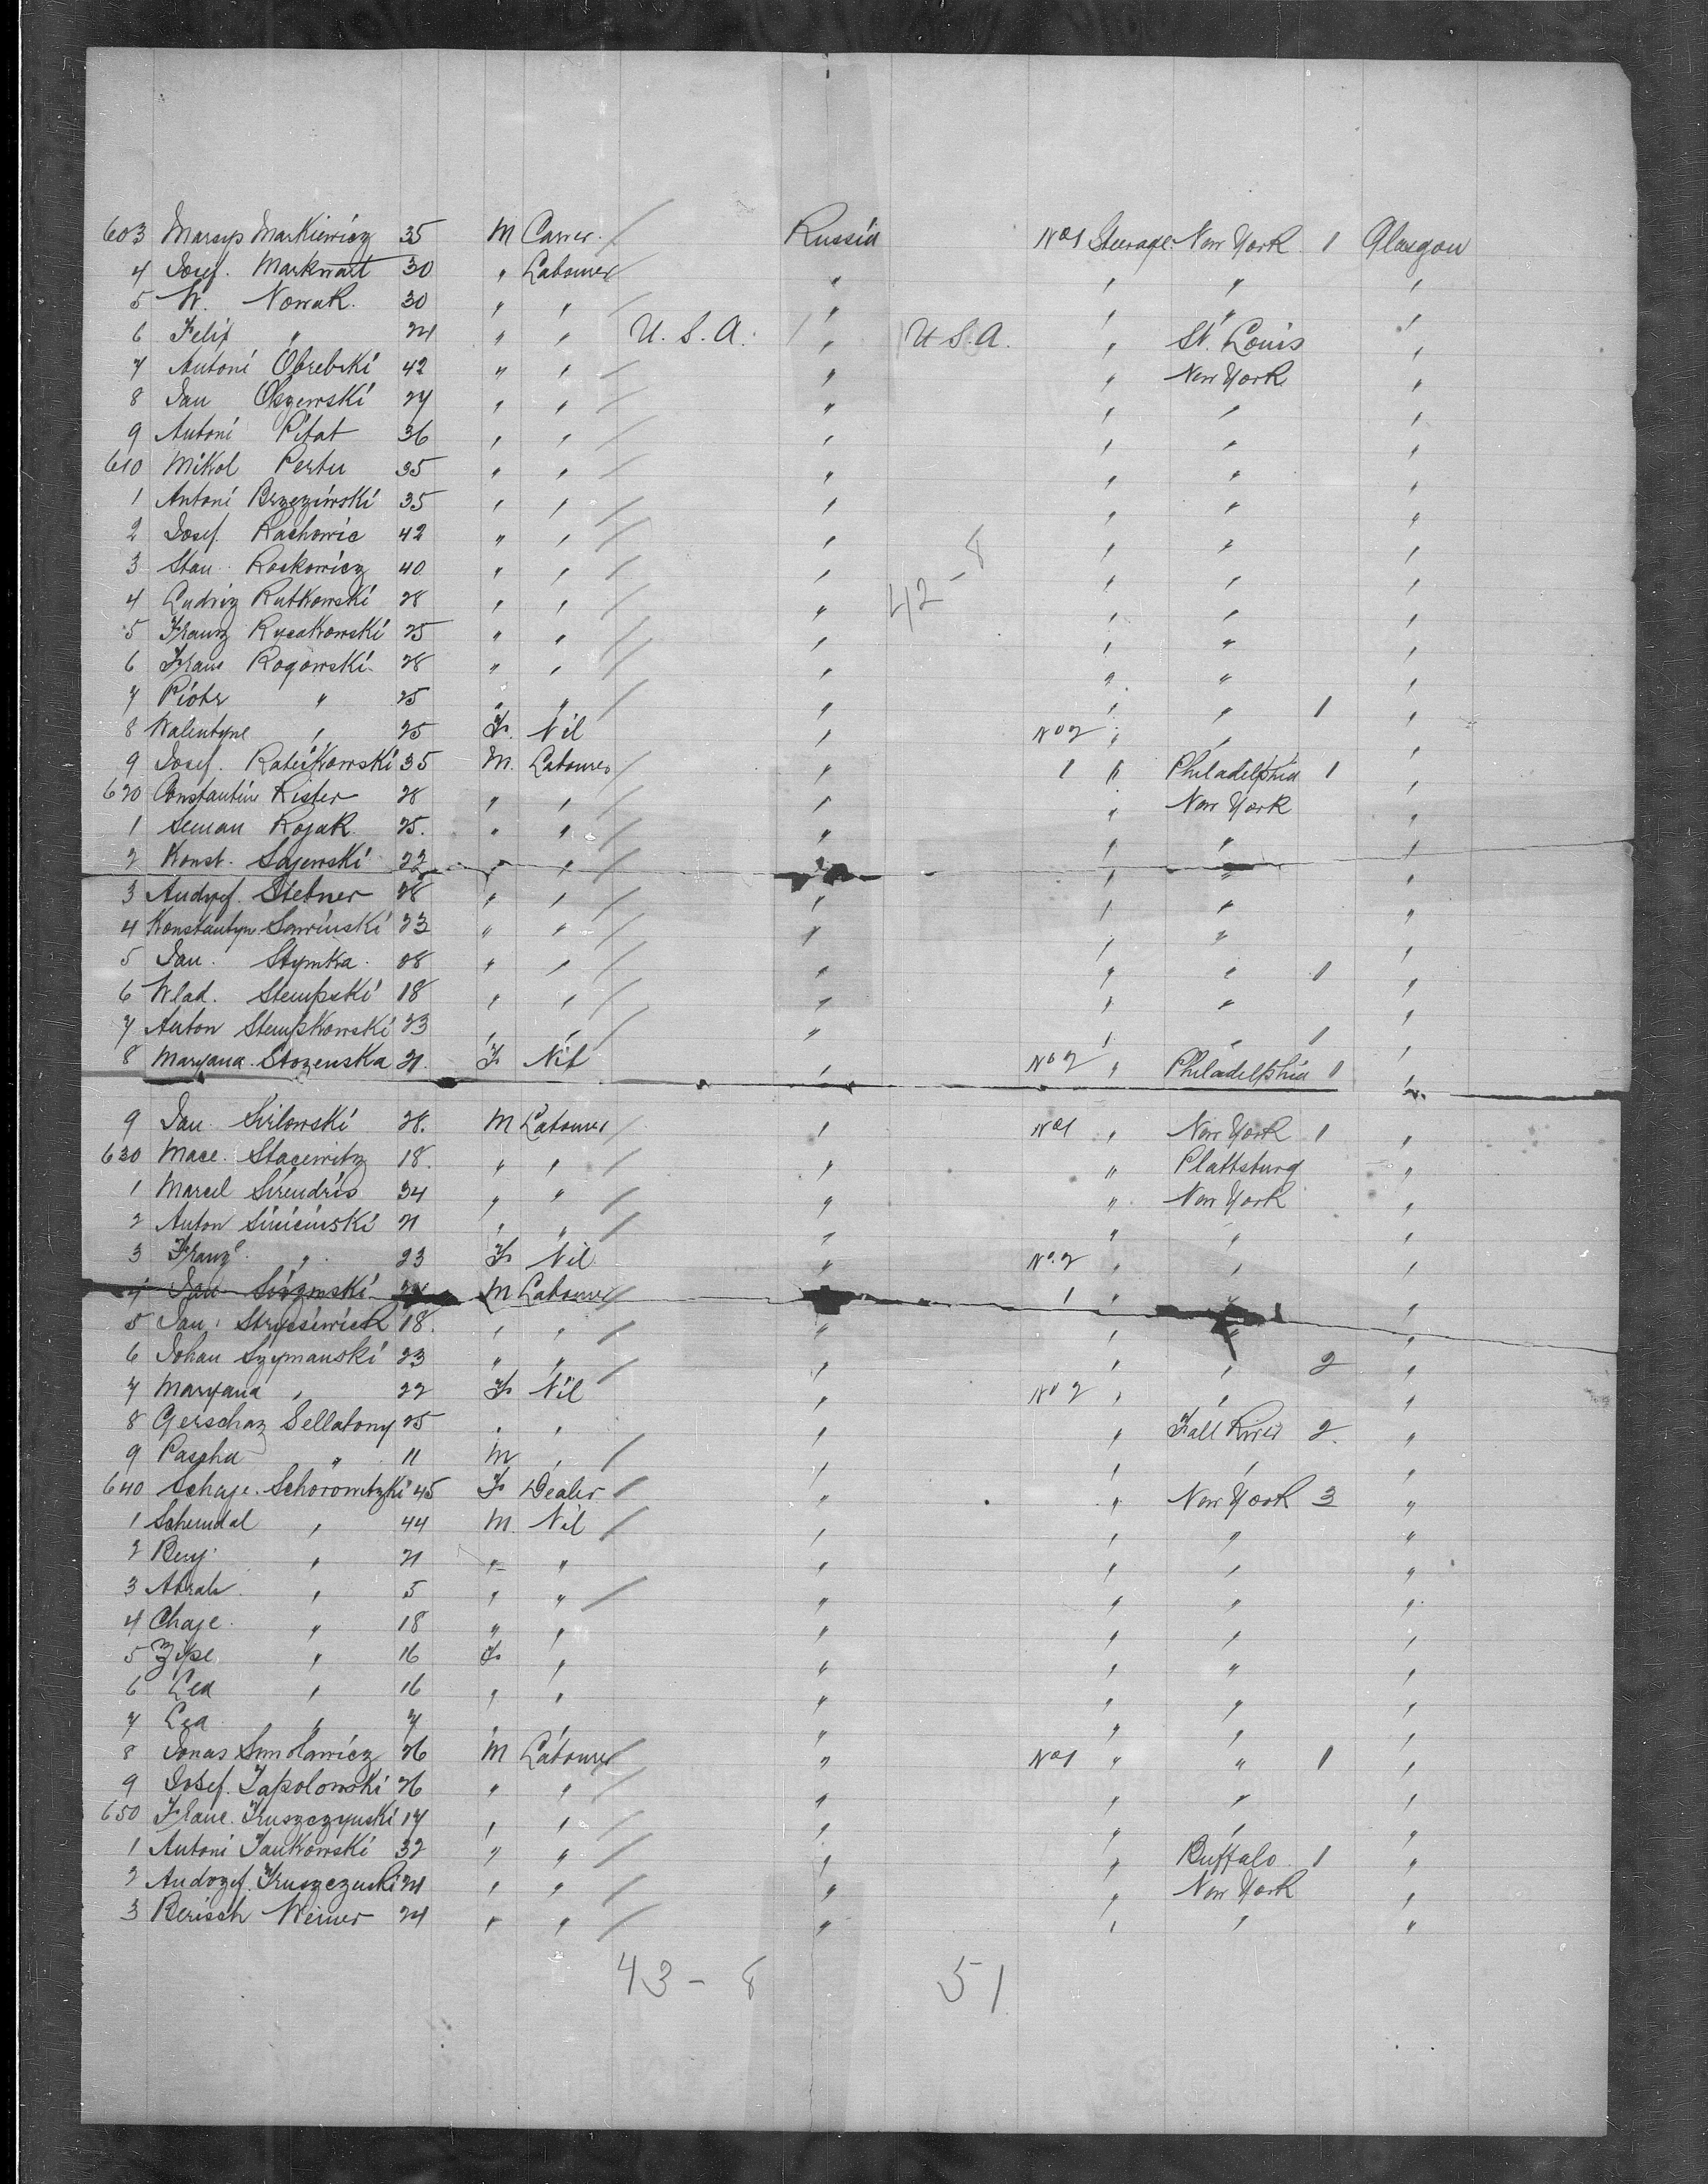 603 Marsyp Markiewicz 35 M Carrer / Russia No 1 Steerage New York 1 Glasgow
4 Josef. Markwart 30 " Labourer / " " " "
5 W. Nowak. 30 " " / " " " "
6 Felix " 24 " " U.S.A. / " U.S.A. " St. Louis "
7 Antoni Obrebski 42 " " / " " New York "
8 Jan Olszewski 27 " " / " " " "
9 Antoni Pitat 36 " " / " " " "
610 Mikol Pertu 35 " " / " " " "
1 Antoni Brzezinski 35 " " / " " " "
2 Josef Rachowic 42 " " / " " " "
42 - 8
3 Stan. Roskowicz 40 " " / " " " "
4 Ludwig Rutkowski 28 " " / " " " "
5 Franz Rysakowski 25 " " / " " " "
6 Franc Rogowski. 28 " " / " " " "
7 Piotr " 25 " " / " " " 1 "
8 Walentyne " 25 F. Nil " No 2 " " "
9 Josef. Rateikowski 35 M. Labourer / " 1 " Philadelphia 1 "
620 Constantine Rister 28 " " / " " New York "
1 Seman Rojak. 25. " " / " " " "
2 Konst. Sajewski 22 " " / " " " "
3 Andrzej. Stebner 28 " " / " " " "
4 Konstantyn Sawinski 23 " " / " " " "
5 Jan. Stymka. 28 " " / " " " 1 "
6 Wlad. Stempski 18 " " / " " " "
7 Anton Stempkowski 23 " " / " " " 1 "
8 Maryana. Stozenska 21. F Nil " No 2 " Philadelphia 1 "
9 Jan. Sirlowski 28. M Labourer / " No 1 " New York 1 "
630 Mace. Stacewitz 18. " " / " " Plattsburg "
1 Marcel Sirendris 34 " " / " " New York "
2 Anton Sinicinski 21 " " / " " " "
3 Franz " 23 F Nil " No. 2 " " "
4 Jan M Labourer / " 1 " " "
5 Jan. 18. " " / " " " "
6 Johan Szymanski 23 " " / " " " 2 "
7 Maryana " 22 F Nil " No 2 " " "
8 Gerschaz Sellatony 25 " " " " Fall River 2. "
9 Pascha " 11 M " / " " " "
640 Schaje. Schorowitzki 45 F Dealer / " " New York 3 "
1 Scheindal " 44 M. Nil / " " " "
2 Benj. " 21 " " " " " "
3 Abrah. " 5 " " / " " " "
4 Chaje. " 18 " " " " " "
5 Zipe. " 16 F " " " " "
6 Lea " 16 " " " " " "
7 Lea " 7 " " " " " "
8 Jonas Smolawicz 26 M Labourer / " No 1 " " 1 "
9 Josef. Tapolowski 26 " " / " " " "
650 Franc. Truszczynski 17 " " / " " " "
1 Antoni Tankowski 32 " " / " " Buffalo 1 "
2 Andrzej. Truszczuski 24 " " / " " New York "
3 Berisch Weiner 24 " " / " " " "
43 - 8 51